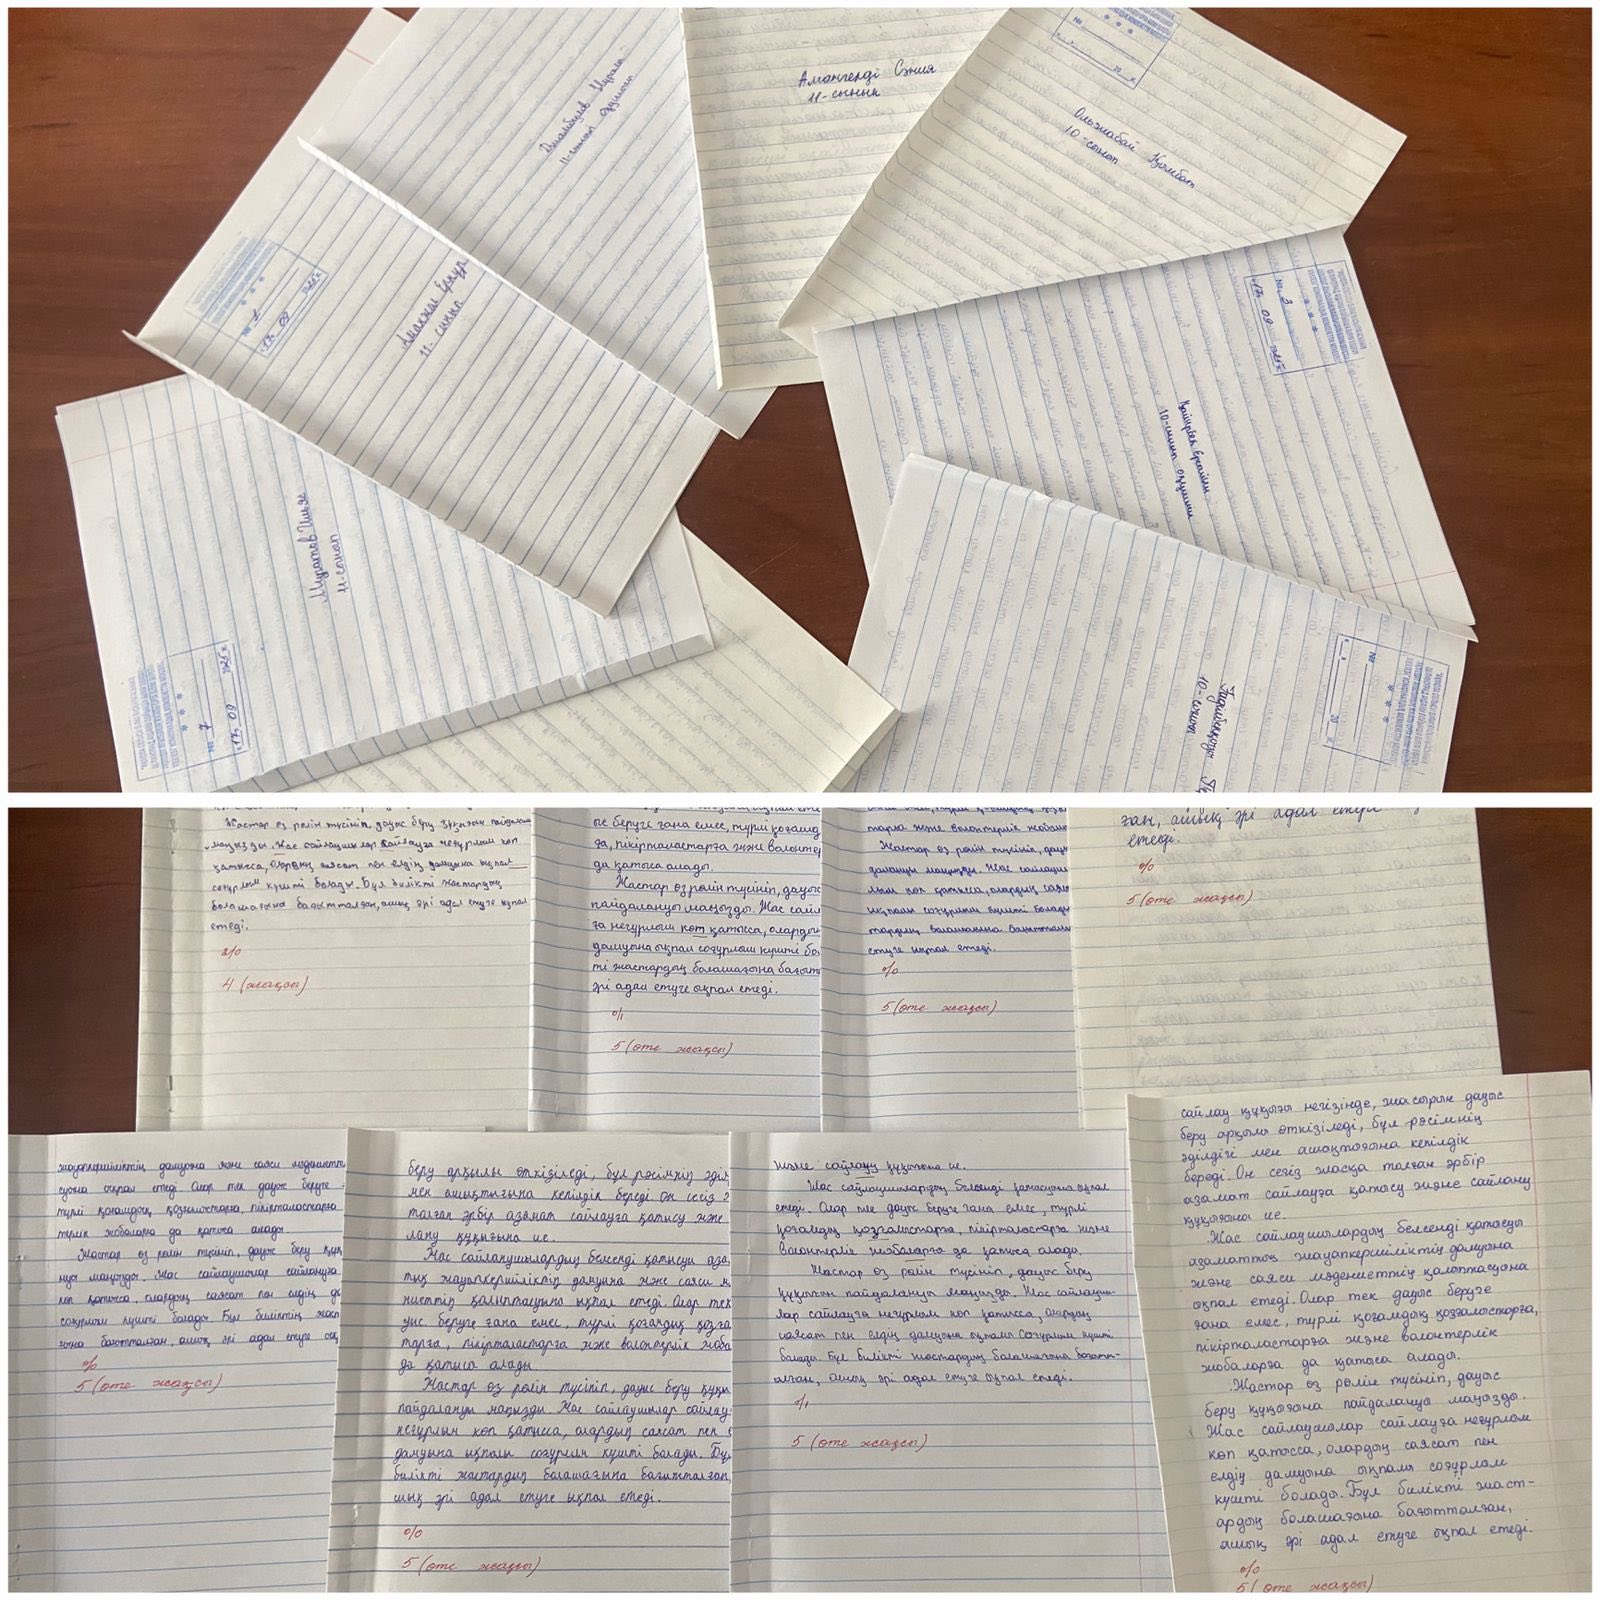 Джамбулов Мирас
11-сынып оқушысы
Амангелді Сәния
11-сынып
Ольжабай Қымбат
10-сынып
№
20
Аманжол Ернұр
11-сынып
№ 1
17. 09 2025 ж
№ 3
17. 09 2025 ж
10-сынып оқушысы
Муратов Ильяс
11-сынып
№ 7
17. 09 2025 ж
10-сынып
№
20
Жастар өз рөлін түсініп, дауыс беру құқығын
маңызды. Жас сайлаушылар сайлауға неғұрлым көп
қатысса, олардың саясат пен елдің дамуына ықпал
соғұрлым күшті болады. Бұл билікті жастардың
болашағына бағытталған, ашық әрі адал етуге ықпал
етеді.
2/0
4 (жақсы)
ыс беруге ғана емес, түрлі қоғамд
ға, пікірталастарға және волонтер
да қатыса алады.
Жастар өз рөлін түсініп, дауыс
пайдалануы маңызды. Жас сай
ға неғұрлым көп қатысса, олардың
дамуына ықпал соғұрлым күшті бо
ті жастардың болашағына бағыт
әрі адал етуге ықпал етеді.
0/1
5 (өте жақсы)
тарға және волонтерлік жобала
Жастар өз рөлін түсініп, дауы
далануы маңызды. Жас сайлауш
лым көп қатысса, олардың сая
ықпалы соғұрлым күшті болады
тардың болашағына бағыттал
етуге ықпал етеді.
0/0
5 (өте жақсы)
ған, ашық әрі адал етуге
етеді.
0/0
5 (өте жақсы)
жауапкершіліктің дамуына және саяси мәдениетт
суына ықпал етеді. Олар тек дауыс беруге
түрлі қоғамдық қозғалыстарға, пікірталастарға
терлік жобаларға да қатыса алады.
Жастар өз рөлін түсініп, дауыс беру құқ
нуы маңызды. Жас сайлаушылар сайлауға
көп қатысса, олардың саясат пен елдің д
соғұрлым күшті болады. Бұл биліктің жаст
ғына бағытталған, ашық әрі адал етуге
0/0
5 (өте жақсы)
беру арқылы өткізіледі, бұл рәсімнің әділ
мен ашықтығына кепілдік береді. Он сегіз ж
толған әрбір азамат сайлауға қатысу және
лану құқығына ие.
Жас сайлаушылардың белсенді қатысуы аза
тық жауапкершіліктің дамуына және саяси м
ниеттің қалыптасуына ықпал етеді. Олар тек
уыс беруге ғана емес, түрлі қоғамдық қозға
тарға, пікірталастарға және волонтерлік жоба
да қатыса алады.
Жастар өз рөлін түсініп, дауыс беру құқы
пайдалануы маңызды. Жас сайлаушылар сайлау
неғұрлым көп қатысса, олардың саясат пен е
дамуына ықпалы соғұрлым күшті болады. Бұл
билікті жастардың болашағына бағытталған,
шық әрі адал етуге ықпал етеді.
0/0
5 (өте жақсы)
және сайлану құқығына ие.
Жас сайлаушылардың белсенді қатысуына ықпал
етеді. Олар тек дауыс беруге ғана емес, түрлі
қоғамдық қозғалыстарға, пікірталастарға және
волонтерлік жобаларға да қатыса алады.
Жастар өз рөлін түсініп, дауыс беру
құқығын пайдалануы маңызды. Жас сайлаушы-
лар сайлауға неғұрлым көп қатысса, олардың
саясат пен елдің дамуына ықпалы соғұрлым күшті
болады. Бұл билікті жастардың болашағына бағытт-
алған, ашық әрі адал етуге ықпал етеді.
0/1
5 (өте жақсы)
сайлау құқығы негізінде, жасырын дауыс
беру арқылы өткізіледі, бұл рәсімнің
әділдігі мен ашықтығына кепілдік
береді. Он сегіз жасқа толған әрбір
азамат сайлауға қатысу және сайлану
құқығына ие.
Жас сайлаушылардың белсенді қатысуы
азаматтық жауапкершіліктің дамуына
және саяси мәдениеттің қалыптасуына
ықпал етеді. Олар тек дауыс беруге
ғана емес, түрлі қоғамдық қозғалыстарға,
пікірталастарға және волонтерлік
жобаларға да қатыса алады.
Жастар өз рөлін түсініп, дауыс
беру құқығына пайдалануы маңызды.
Жас сайлаушылар сайлауға неғұрлым
көп қатысса, олардың саясат пен
елдің дамуына ықпалы соғұрлым
күшті болады. Бұл билікті жаст-
ардың болашағына бағытталған,
ашық әрі адал етуге ықпал етеді.
0/0
5 (өте жақсы)